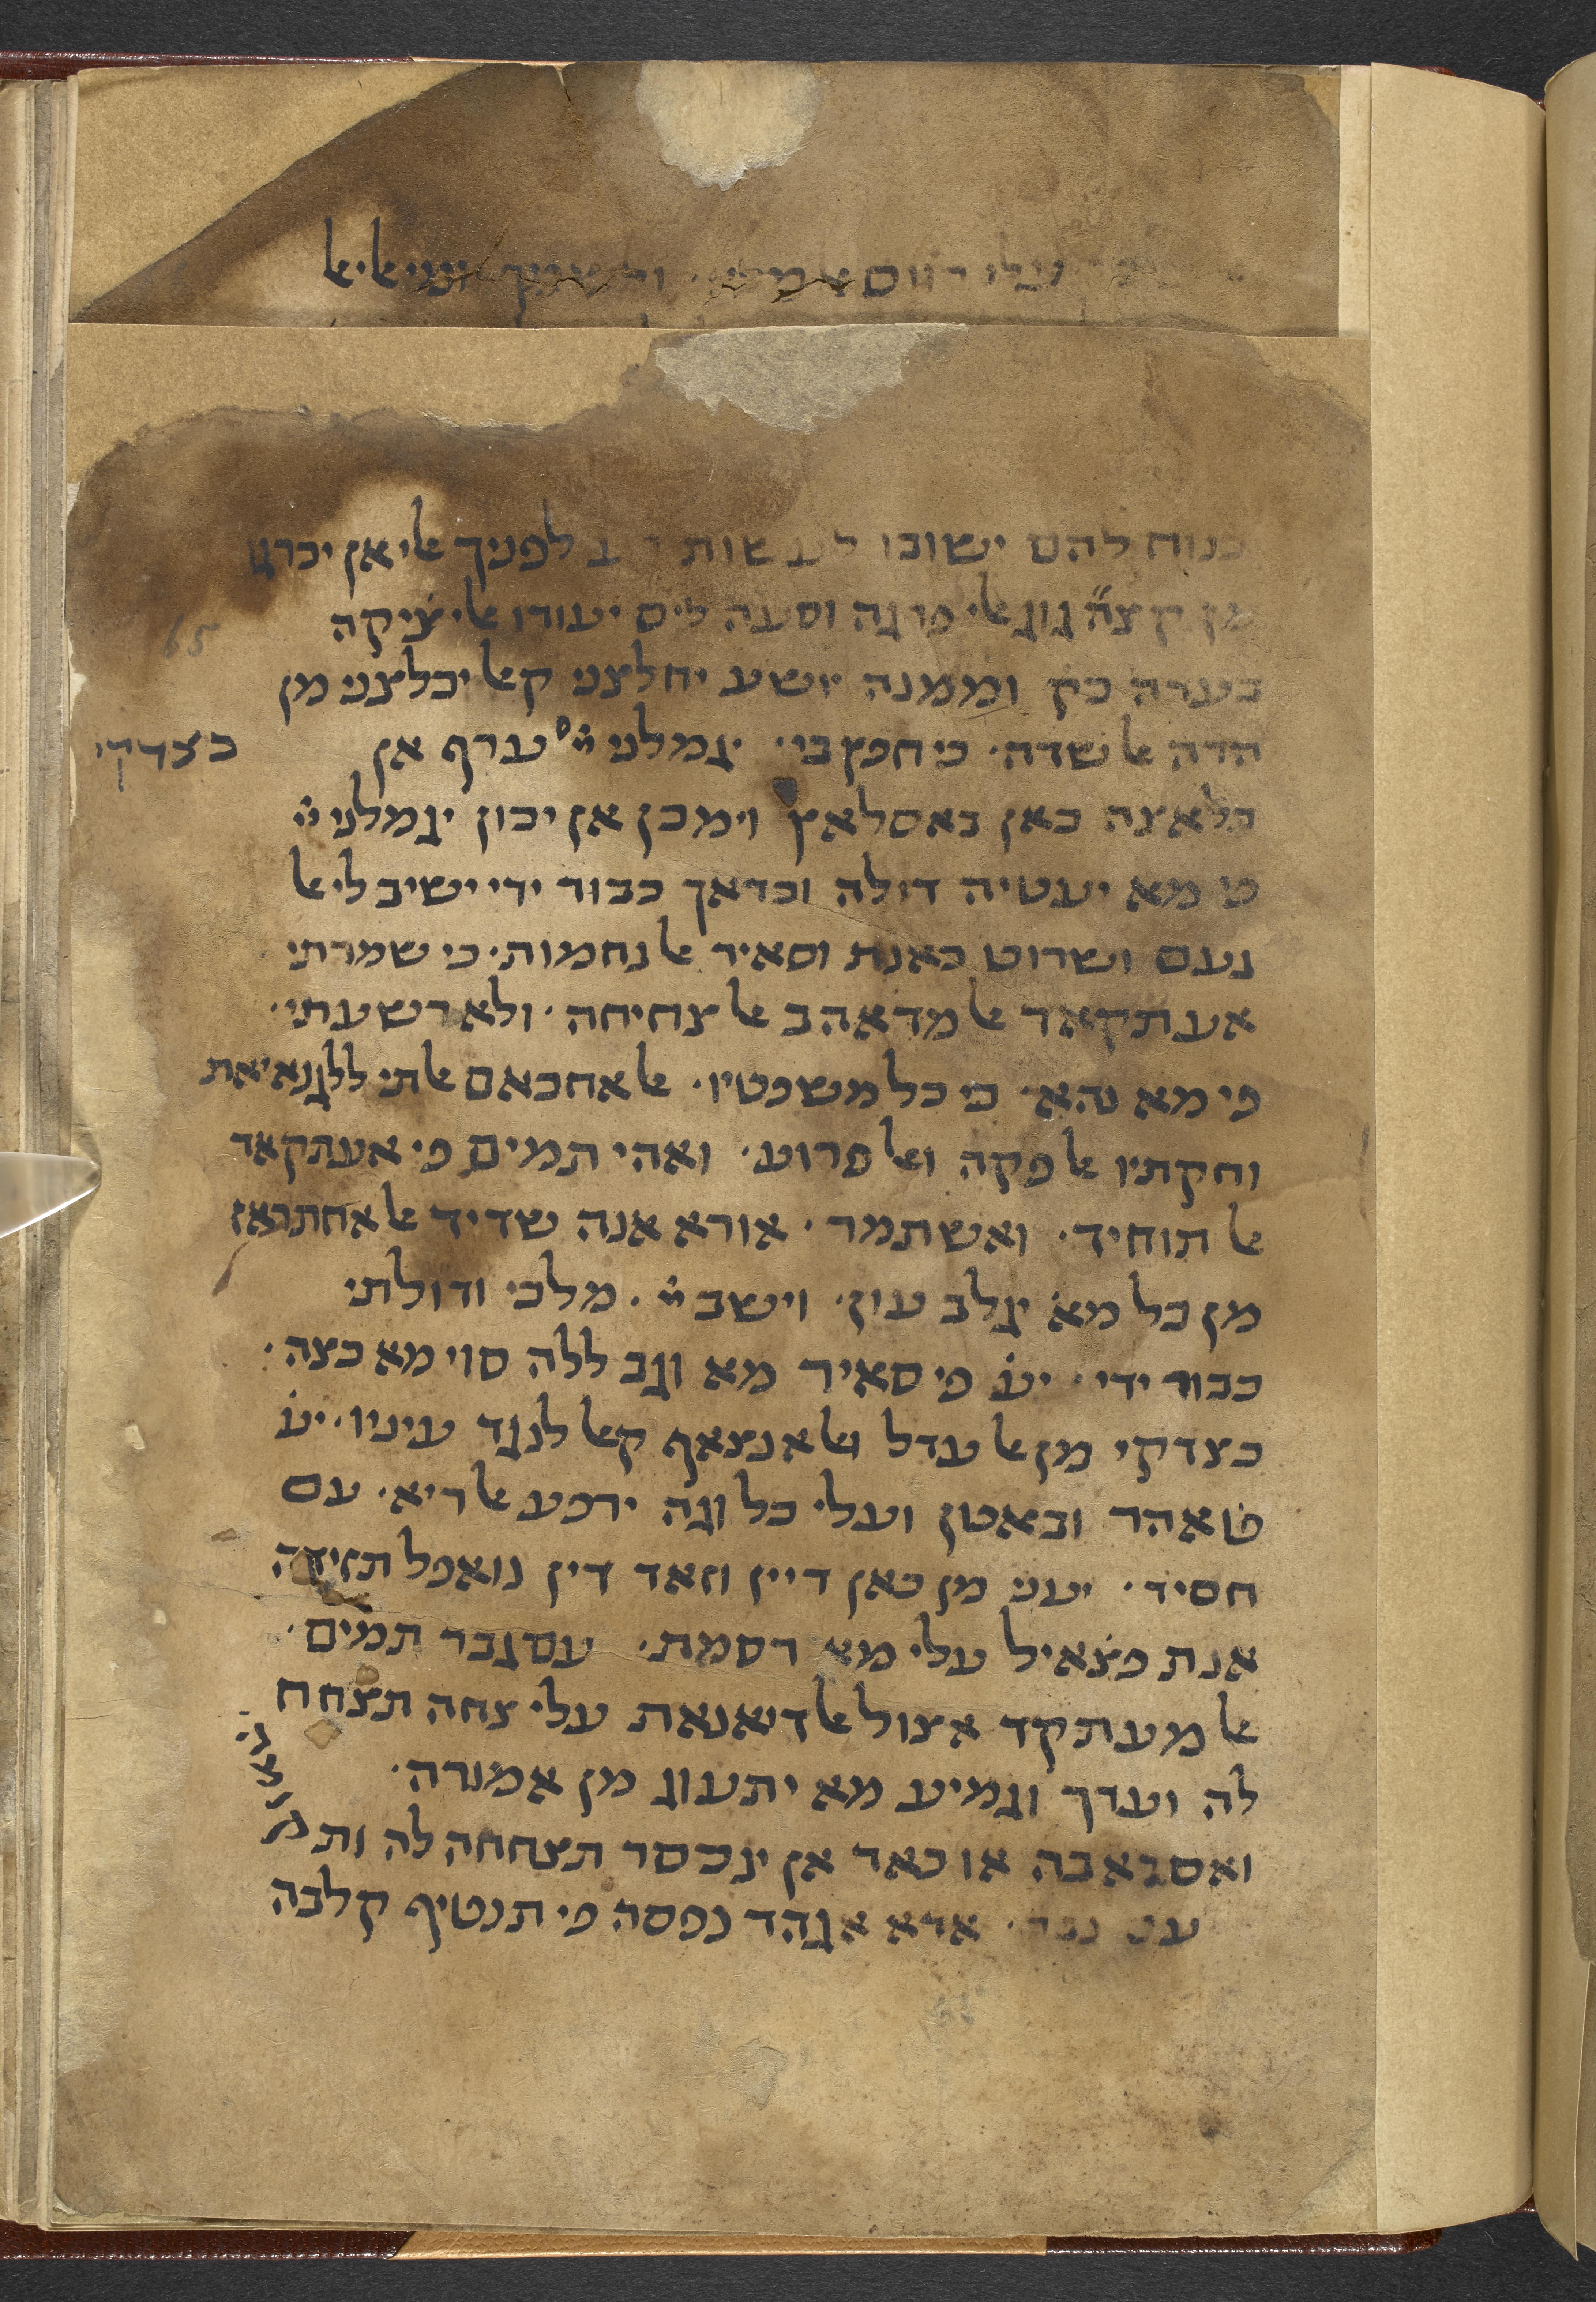 עלי
כנוח להם ישובו לעשות לפניך אלי אן יכרגו
מן קצה גוג אלי פרגה וסעה ליס יעודו אלי ציקה
בערה כק וממנה יושע יחלצני קאל יכלצני מן
הדה אלשדה· כי חפץ בי· יגמלני ייי ערף אן
בצדקי
כלאצה כאן באסלאץ וימכן אן יכון יגמלני ייי
פי מא יעטיה דולה וכדאך כבור ידי ישיב לי אל
נעם ושרוט כאנת וסאיר אלנחמות· כי שמרתי
אעתקאד אלמדאהב אלצחיחה· ולא רשעתי·
פי מא נהא· כי כל משפטיו· אלאחכאם אלתי ללגנאיאת
וחקתיו אלפקה ואלפרוע· ואהי תמים פי אעתקאד
אלתוחיד· ואשתמר· אורא אנה שדיד אלאחתראז
מן כל מא יגלב עון· וישב ייי· מלכי ודולתי
כבור ידי· יעׄ פי סאיר מא וגב ללה סוי מא כצה·
כצדקי מן אלעדל ואלאנצאף קאל לנגד עיניו· יעׄ
טׄאהר ובאטן ועלי כל וגה ירפע אלריא· עם
חסיד· יעני מן כאן דיין וזאד דין נואפל תזידה
אנת פצׄאיל עלי מא רסמת· עם גבר תמים·
אלמעתקד אצול אלדיאנאת עלי צחה תצחח
לה ועדך וגמיע מא יתעוג מן אמורה·
ואסבאבה או כאד אן ינכסר תצחחה לה ות
נבר· אדא אגהד נפסה פי תנטיף קלבה
65